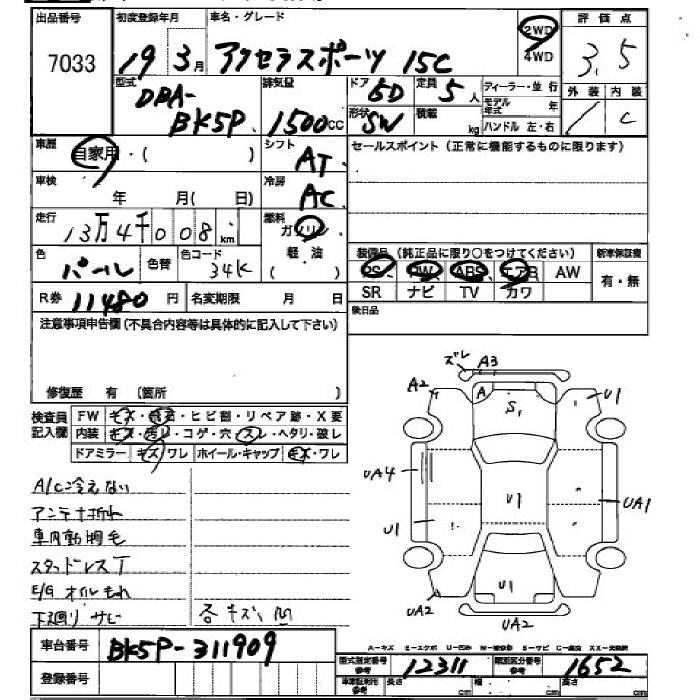 出品番号 初度登録年月 車名・グレード 評価点
7033 19年3月 アクセラスポーツ 15C 2WD 4WD 3.5
外装 内装
C
型式 DBA-BK5P 排気量 1500cc ドア 5D 定員 5人 ディーラー・並行
形状 SW 積載 kg モデル年式 年
ハンドル 左・右
車歴 自家用・( ) シフト AT セールスポイント(正常に機能するものに限ります)
車検 年 月(日) 冷房 AC
走行 13万4千008km 燃料 ガソリン 軽油 ( )
色 パール 色替 色コード 34K
装備品(純正品に限り○をつけてください) 新車保証書
PS PW ABS エアB AW 有・無
SR ナビ TV カワ
R券 11480円 名変期限 月 日
後日品
注意事項申告欄(不具合内容等は具体的に記入して下さい)
修復歴 有 〔箇所 〕
検査員記入欄 FW キズ・飛石・ヒビ割・リペア跡・X要
内装 キズ・汚レ・コゲ・穴・スレ・ヘタリ・破レ
ドアミラー キズ/ワレ ホイール・キャップ キズ・ワレ
A/C冷えない
アンテナ折れ
車内動物毛
スタッドレスT
E/Gオイルもれ
下廻りサビ 各キズ、凹
ズレ A3
A2 A S1 U1
UA4 U1 UA1
U1
U1
UA2 UA2
A=キズ E=エクボ U=凹み W=補修跡 S=サビ C=腐食 XX=交換済
車台番号 BK5P-311909
登録番号
型式指定番号 参考 12311 類別区分番号 参考 1652
車庫証明用 参考 長さ cm cm 高さ cm